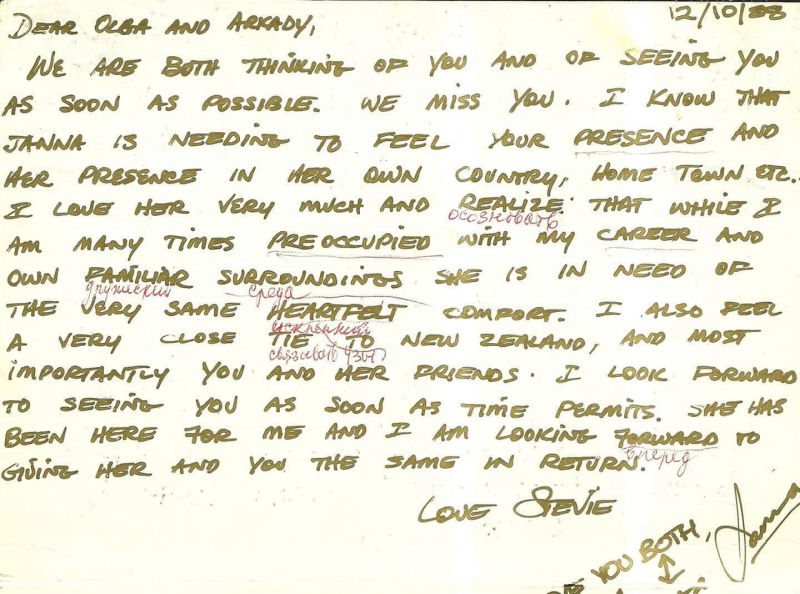 12/10/88
DEAR OLGA AND ARKADY,
WE ARE BOTH THINKING OF YOU AND OF SEEING YOU
AS SOON AS POSSIBLE. WE MISS YOU. I KNOW THAT
JANNA IS NEEDING TO FEEL YOUR PRESENCE AND
HER PRESENCE IN HER OWN COUNTRY, HOME TOWN ETC.
I LOVE HER VERY MUCH AND REALIZE THAT WHILE I
осозновать
AM MANY TIMES PREOCCUPIED WITH MY CAREER AND
OWN FAMILIAR SURROUNDINGS SHE IS IN NEED OF
дружиский среда
THE VERY SAME HEARTFELT COMFORT. I ALSO FEEL
A VERY CLOSE TIE TO NEW ZEALAND, AND MOST
связовать узы
IMPORTANTLY YOU AND HER FRIENDS. I LOOK FORWARD
TO SEEING YOU AS SOON AS TIME PERMITS. SHE HAS
BEEN HERE FOR ME AND I AM LOOKING FORWARD TO
вперед
GIVING HER AND YOU THE SAME IN RETURN.
LOVE STEVIE
YOU BOTH,
Janna